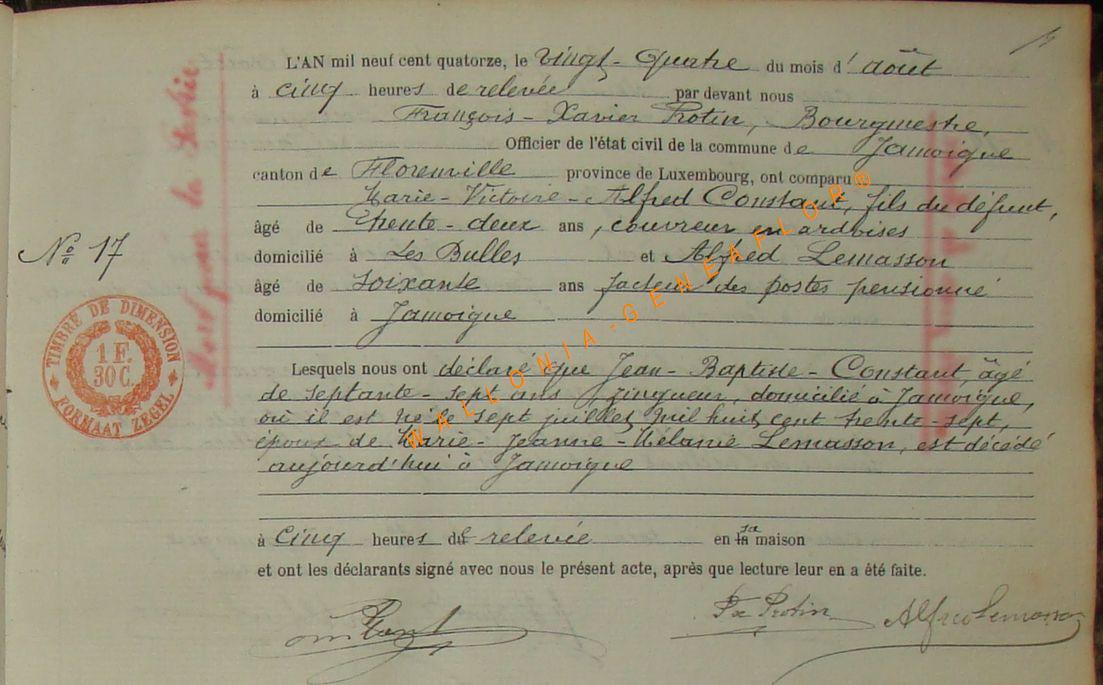 L'AN mil neuf cent quatorze, le vingt-quatre du mois d'août
à cinq heures de relevée par devant nous
François-Xavier Protin, Bourgmestre,
Officier de l'état civil de la commune de Jamoigne
canton de Florenville province de Luxembourg, ont comparu
Marie-Victoire-Alfred Constant, fils du défunt,
âgé de trente-deux ans, couvreur en ardoises
domicilié à Les Bulles et Alfred Lemasson
âgé de soixante ans facteur des postes pensionné
domicilié à Jamoigne
Lesquels nous ont déclaré que Jean-Baptiste-Constant, âgé
de septante-sept ans, zingueur, domicilié à Jamoigne,
où il est né le sept juillet mil huit cent trente-sept,
époux de Marie-Jeanne-Mélanie Lemasson, est décédé
aujourd'hui à Jamoigne
à cinq heures de relevée en la sa maison
et ont les déclarants signé avec nous le présent acte, après que lecture leur en a été faite.
Fx Protin Alfred Lemasson
No 17
TIMBRE DE DIMENSION
1 F.
30 C.
FORMAAT ZEGEL
WALLONIA-GENEAFLOR®